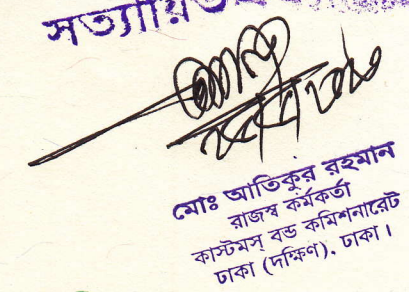 সত্যায়িত
মোঃ আতিকুর রহমান
রাজস্ব কর্মকর্তা
কাস্টমস্ বন্ড কমিশনারেট
ঢাকা (দক্ষিণ), ঢাকা।